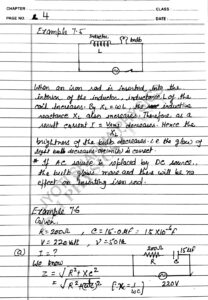 CHAPTER
CLASS
PAGE NO. 4
DATE
Example 7.5
Inductor
bulb
L
When an iron rod is inserted into the
interior of the inductor, inductance L of the
coil increases. By XL = ωL, the inductive
reactance XL also increases. Therefore as a
result current I = Vrms decreases. Hence the
brightness of the bulb decreases i.e the glow of
light bulb decreases is correct
* If AC source is replaced by DC source,
the bulb glows more and there will be no
effect on inserting iron rod.
Example 7.6
Given,
R = 200Ω, C = 15.0μF = 15×10⁻⁶F
V = 220volt, ν = 50Hz
(a) I = ?
We know
Z = √R²+Xc²
= √R²+ [∵ Xc = 1/ωC]
200Ω
15μF
R
C
220V